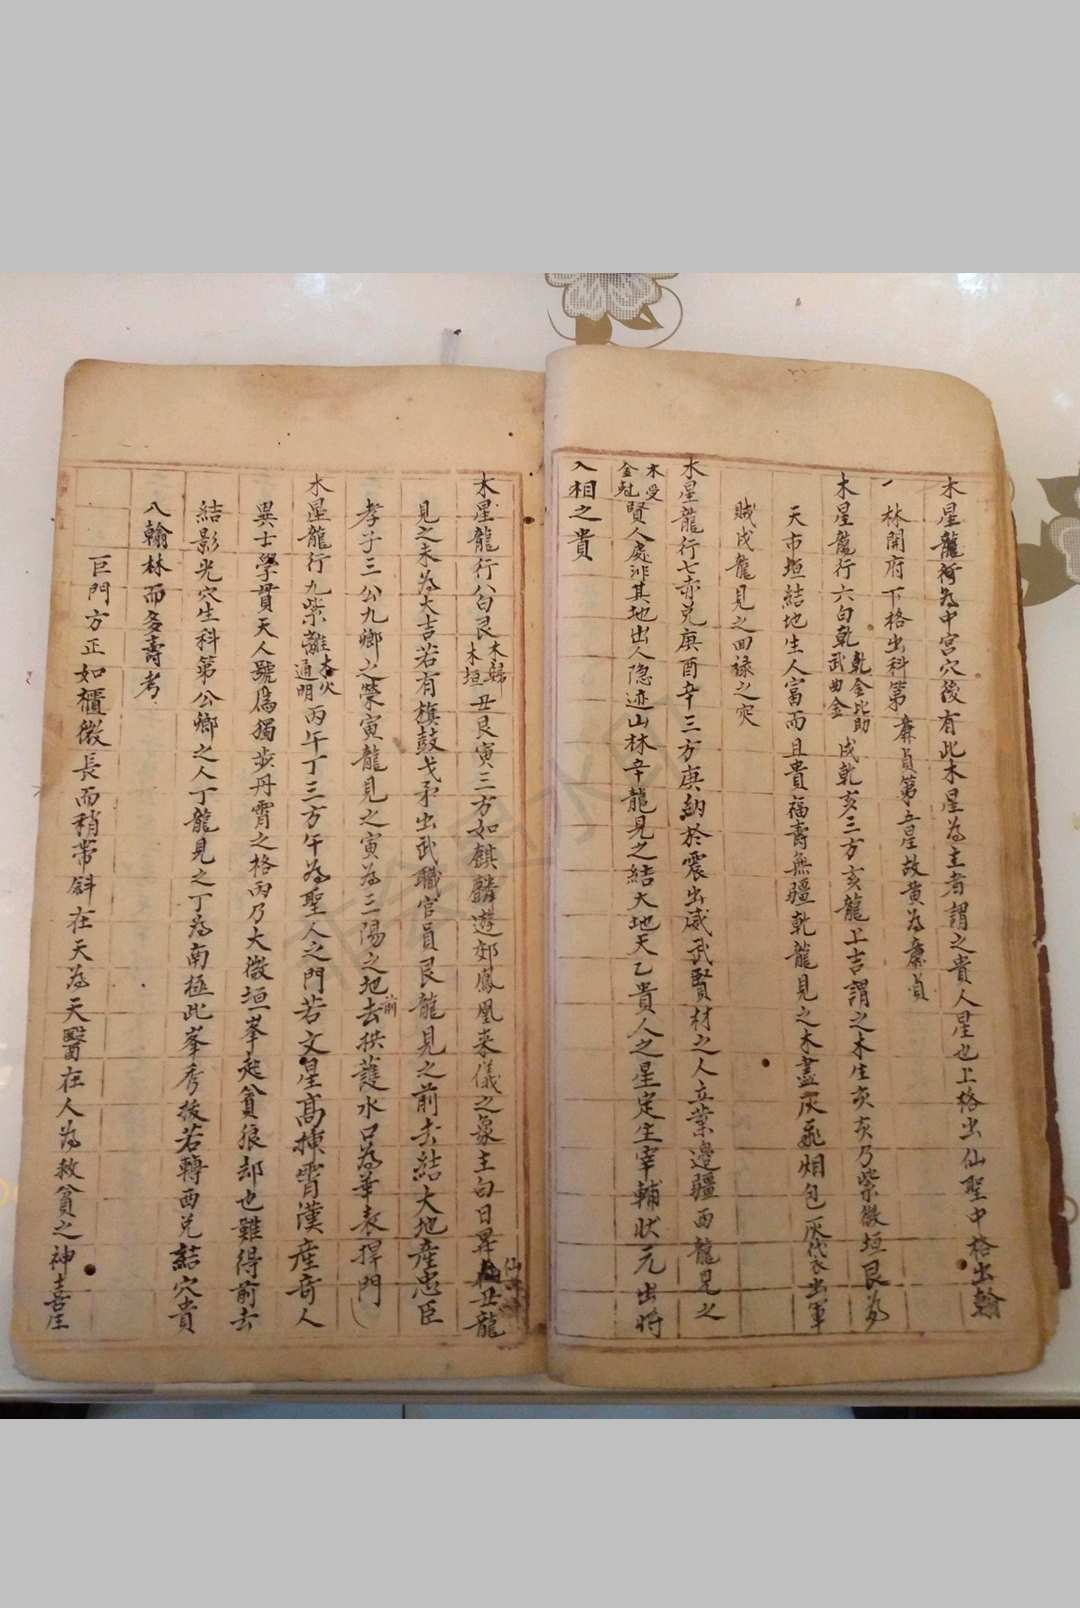 木星龍行為中宮穴後有此木星為主者謂之貴人星也上格出仙聖中格出翰
林開府下格出科第廉貞第五星故黄為廉貞
木星龍行六白乾乾金比助武曲金戌乾亥三方亥龍上吉謂之木生亥亥乃紫微垣艮為
天市垣結地生人富而且貴福壽無疆乾龍見之木盡灰飛烟包灰袋衣出軍
賊戌龍見之回禄之灾
木星龍行七赤兑庚酉辛三方庚納於震出威武賢材之人立業邊疆酉龍見之
木受金尅賢人處非其地出人隐迹山林辛龍見之結大地天乙貴人之星定生宰輔状元出将
入相之貴
木星龍行八白艮木歸木垣丑艮寅三方如麒麟遊郊鳳凰来儀之象主白日昇仙丑龍
見之未為大吉若有旗鼓戈矛出武職官員艮龍見之前去結大地產忠臣
孝子三公九卿之榮寅龍見之寅為三陽之地前去拱護水口為華表捍門
木星龍行九紫離木火通明丙午丁三方午為聖人之門若文星高揷霄漢産竒人
異士學貫天人號為獨步丹霄之格丙乃大微垣一峯起貧狼却也難得前去
結影光穴生科第公卿之人丁龍見之丁為南極此峯秀拔若轉西兑結穴貴
入翰林而多壽考
巨門方正如櫃微長而稍帯斜在天為天醫在人為救貧之神喜坐